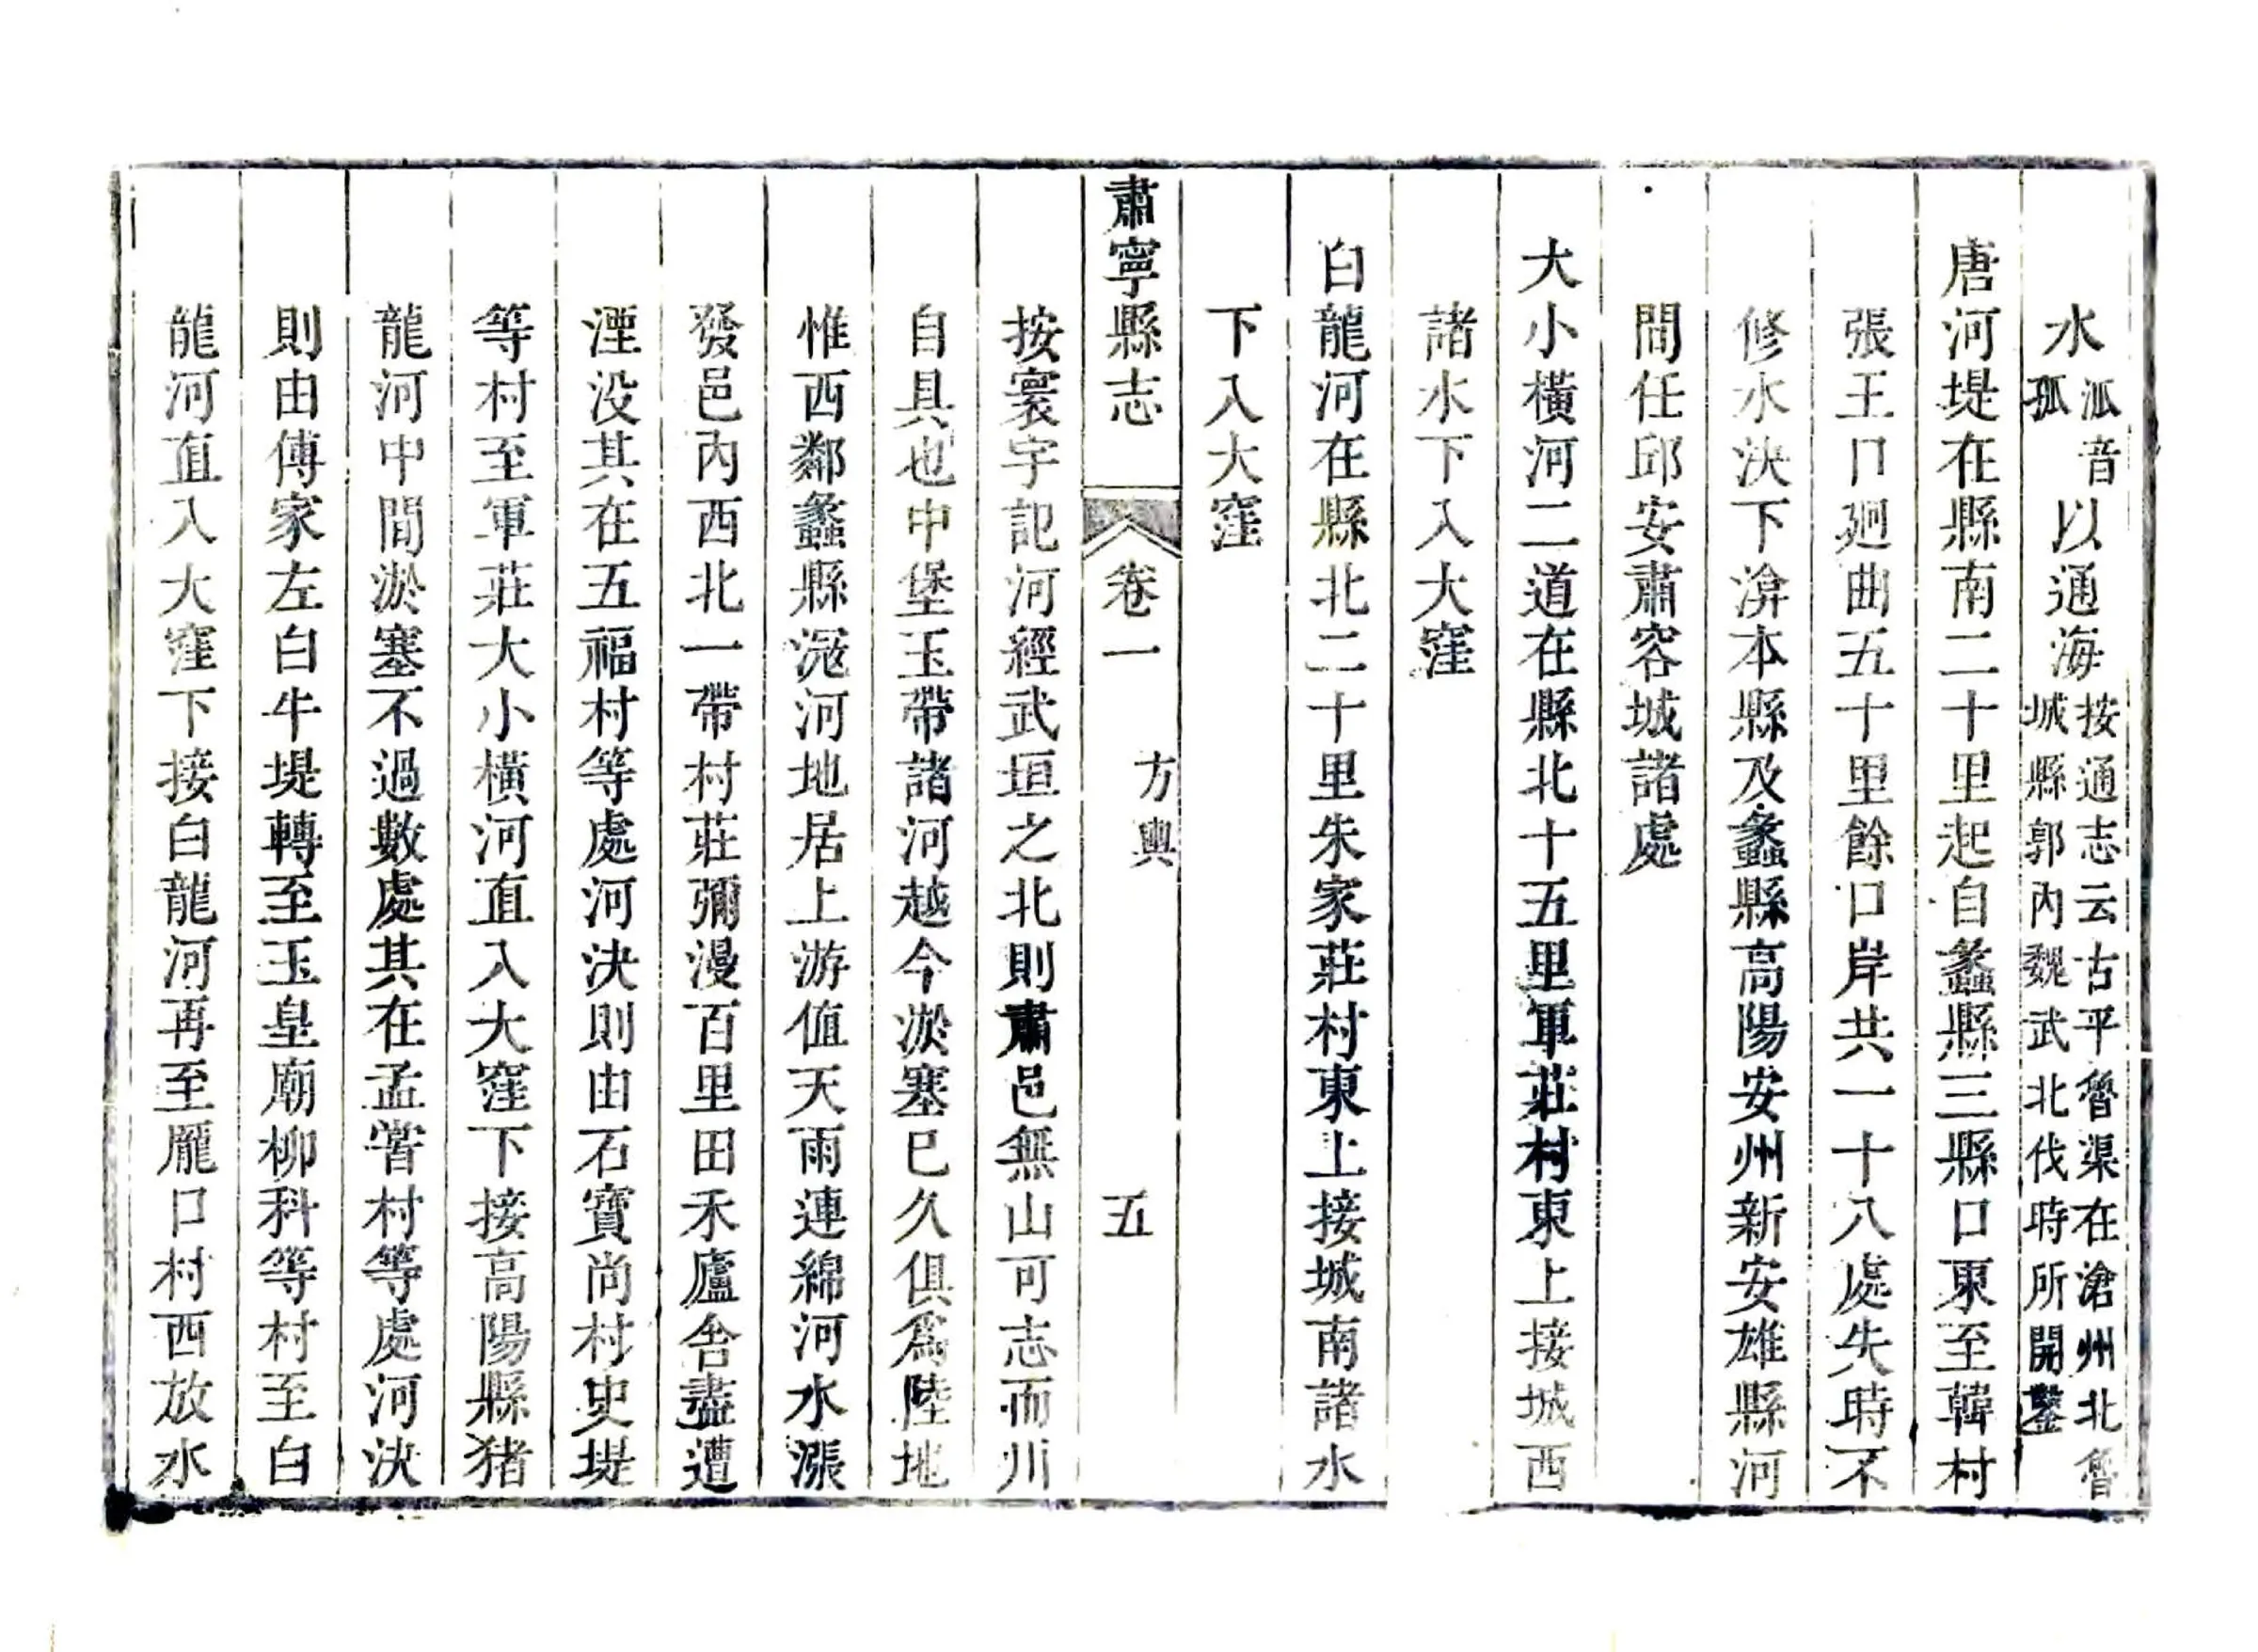 水泒音孤以通海按通志云古平魯渠在滄州北魯城縣郭內魏武北伐時所開鑿
唐河堤在縣南二十里起自蠡縣三縣口東至韓村
張王口廻曲五十里餘口岸共一十八處失時不
修水決下渰本縣及蠡縣高陽安州新安雄縣河
間任邱安肅容城諸處
大小橫河二道在縣北十五里軍莊村東上接城西
諸水下入大窪
白龍河在縣北二十里朱家莊村東上接城南諸水
下入大窪
肅寧縣志 卷一 方輿 五
按寰宇記河經武垣之北則肅邑無山可志而川
自具也中堡玉帶諸河越今淤塞巳久俱爲陸地
惟西鄰蠡縣滱河地居上游值天雨連綿河水漲
發邑內西北一帶村莊彌漫百里田禾廬舍盡遭
湮没其在五福村等處河決則由石寶尚村史堤
等村至軍莊大小橫河直入大窪下接高陽縣猪
龍河中間淤塞不過數處其在孟嘗村等處河決
則由傅家左白牛堤轉至玉皇廟柳科等村至白
龍河直入大窪下接白龍河再至龐口村西放水